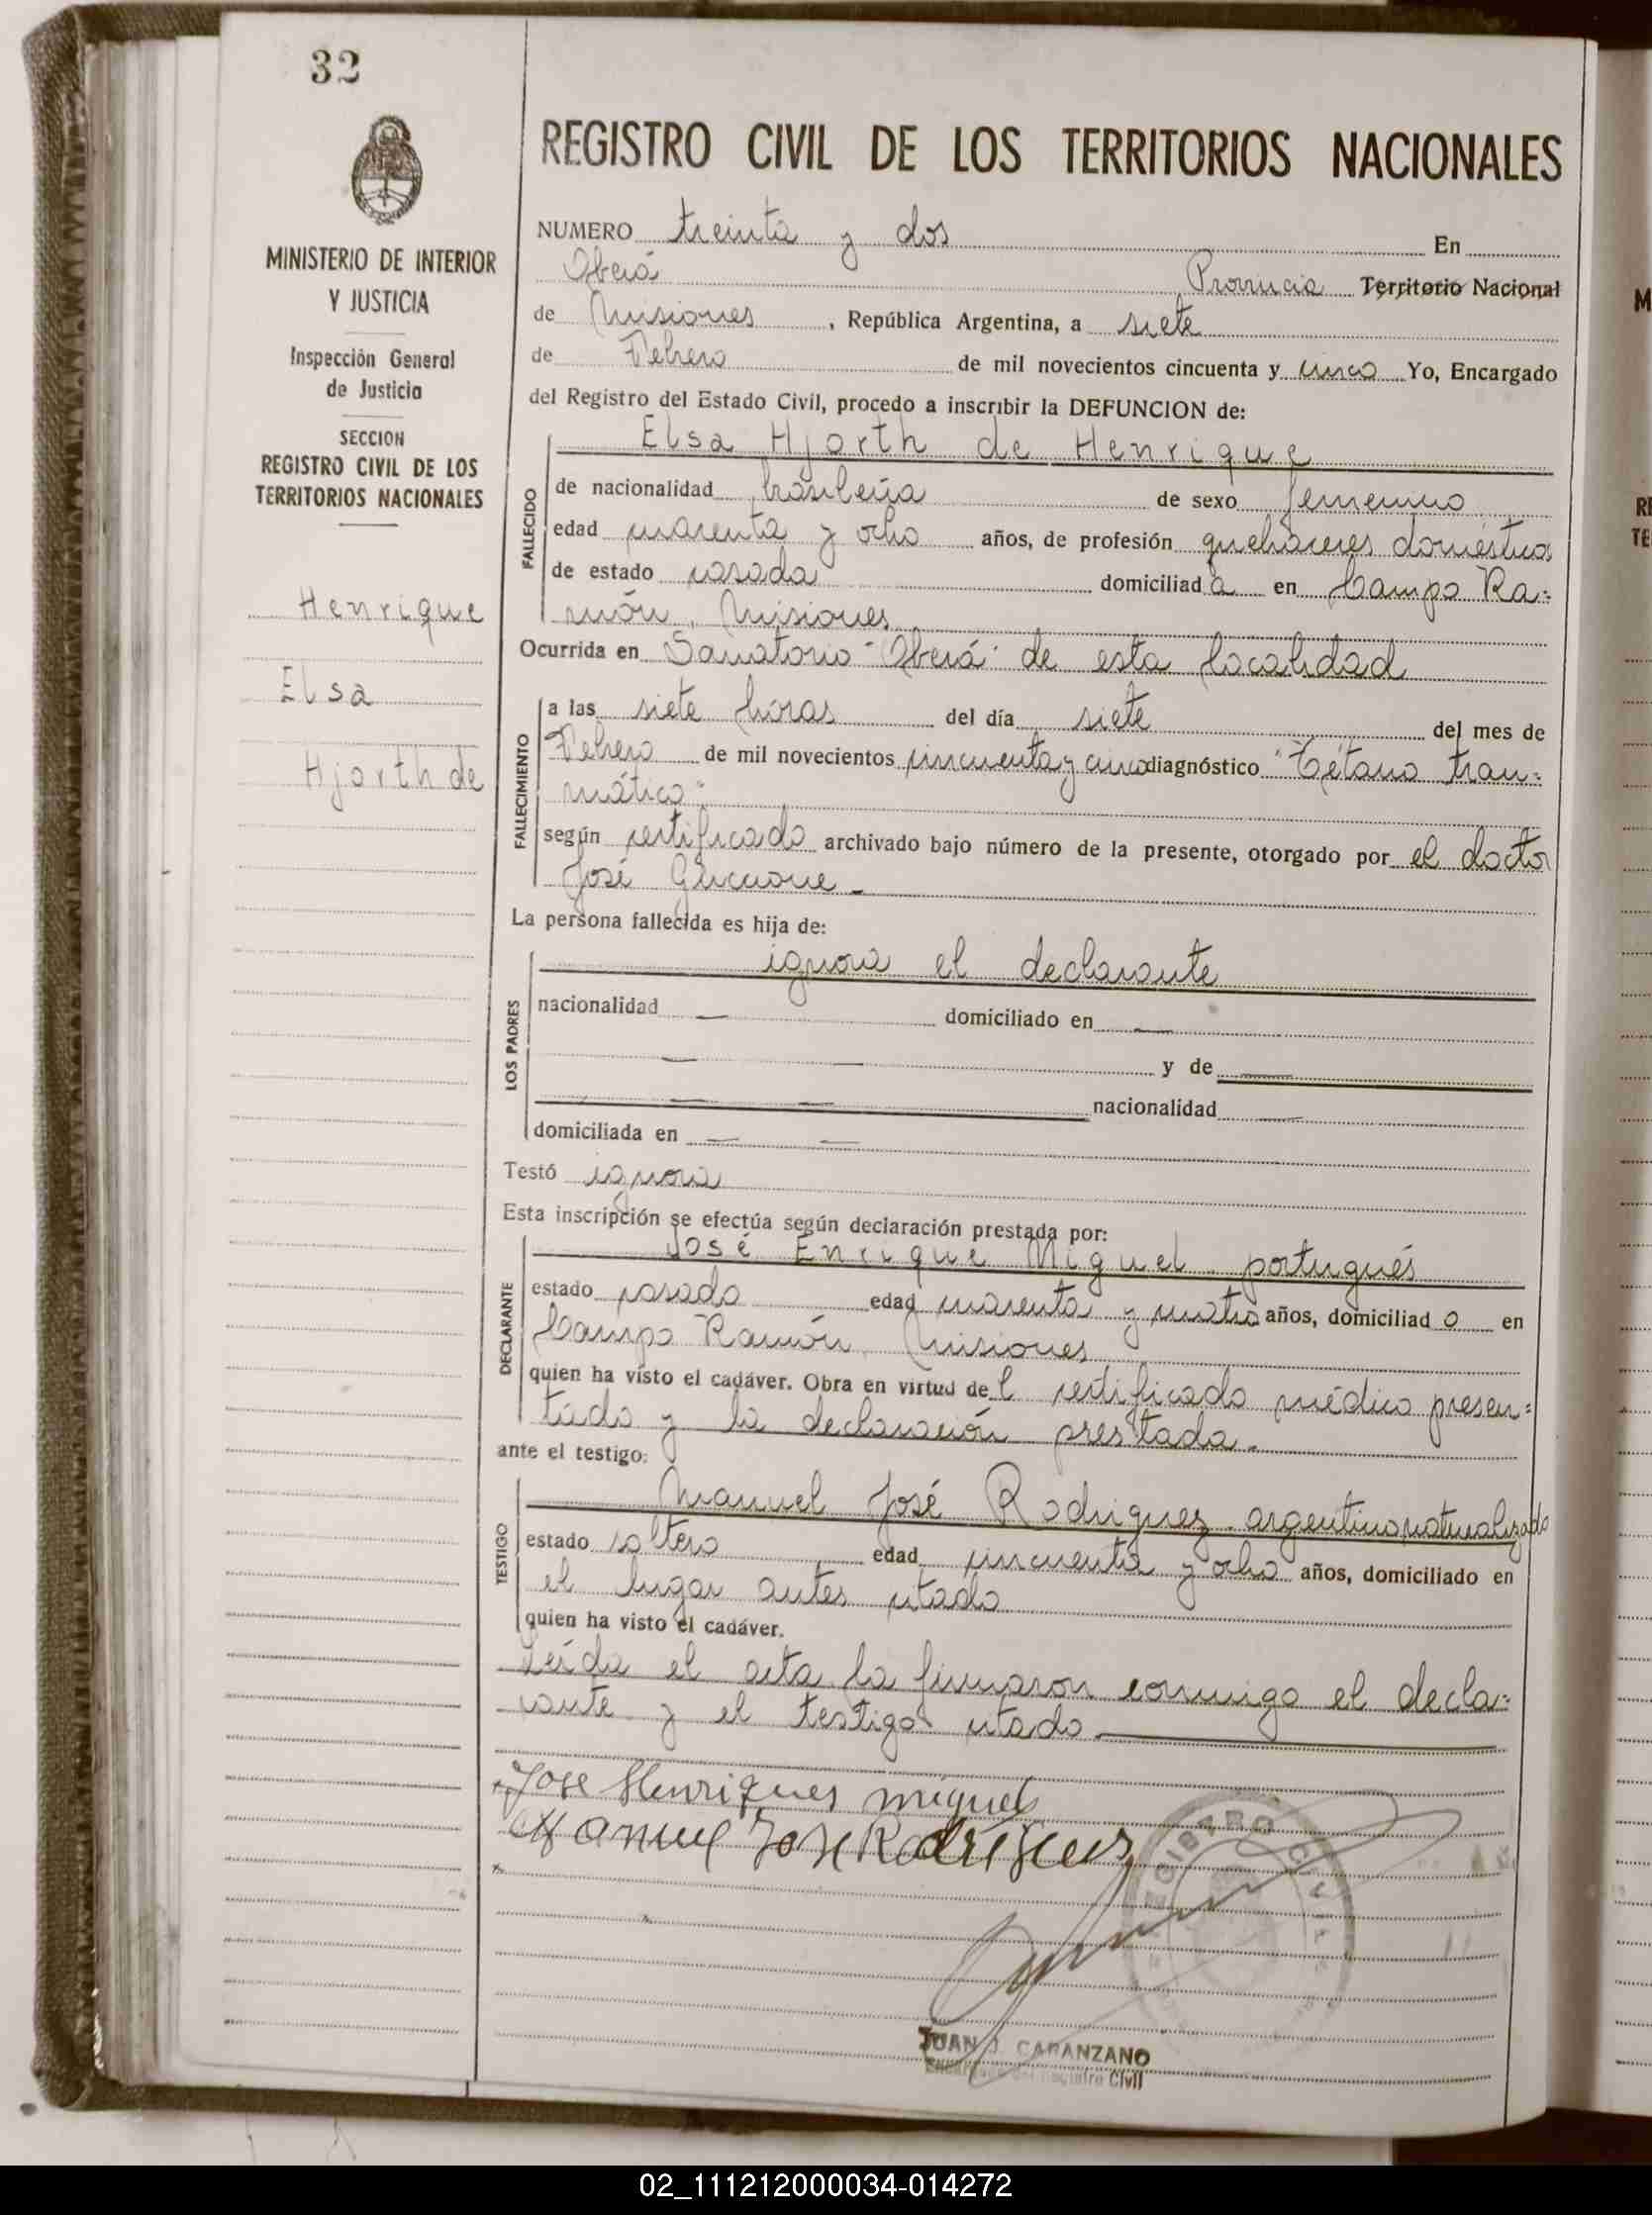 32
MINISTERIO DE INTERIOR
Y JUSTICIA
Inspección General
de Justicia
SECCION
REGISTRO CIVIL DE LOS
TERRITORIOS NACIONALES
Henrique
Elsa
Hjorth de
REGISTRO CIVIL DE LOS TERRITORIOS NACIONALES
NUMERO treinta y dos En
Oberá Provincia Territorio Nacional
de Misiones, República Argentina, a siete
de Febrero de mil novecientos cincuenta y cinco Yo, Encargado
del Registro del Estado Civil, procedo a inscribir la DEFUNCION de:
Elsa Hjorth de Henrique
FALLECIDO
de nacionalidad brasileña de sexo femenino
edad cuarenta y ocho años, de profesión quehaceres domésticos
de estado casada domiciliada en Campo Ra=
món, Misiones
Ocurrida en Sanatorio "Oberá" de esta localidad
FALLECIMIENTO
a las siete horas del día siete del mes de
Febrero de mil novecientos cincuenta y cinco diagnóstico "Tétano trau=
mático"
según certificado archivado bajo número de la presente, otorgado por el doctor
José Guccione.-
La persona fallecida es hija de:
LOS PADRES
ignora el declarante
nacionalidad — domiciliado en —
— — y de —
— — nacionalidad —
domiciliada en — —
Testó ignora
Esta inscripción se efectúa según declaración prestada por:
DECLARANTE
José Enrique Miguel portugués
estado casado edad cuarenta y cuatro años, domiciliado en
Campo Ramón, Misiones
quien ha visto el cadáver. Obra en virtud del certificado médico presen=
tado y la declaración prestada.
ante el testigo:
TESTIGO
Manuel José Rodriguez argentino naturalizado
estado soltero edad cincuenta y ocho años, domiciliado en
el lugar antes citado
quien ha visto el cadáver.
Leída el acta la firmaron conmigo el decla=
rante y el testigo citado.
Jose Henriques miguel
Manuel Jose Rodriguez
REGISTRO CIVIL
JUAN J. CAPANZANO
Encargado del Registro Civil
02_111212000034-014272